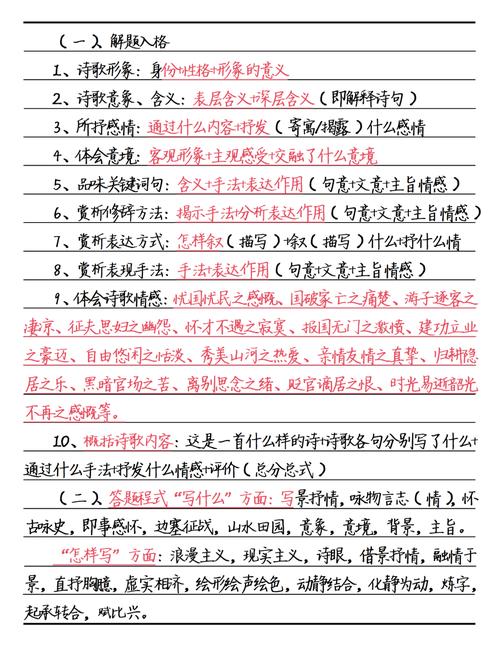 （一）、解题入格
1、诗歌形象：身份+性格+形象的意义
2、诗歌意象、含义：表层含义+深层含义（即解释诗句）
3、所抒感情：通过什么内容+抒发（寄寓/揭露）什么感情
4、体会意境：客观形象+主观感受+交融了什么意境
5、品味关键词句：含义+手法+表达作用（句意+文意+主旨情感）
6、赏析修辞方法：揭示手法+分析表达作用（句意+文意+主旨情感）
7、赏析表达方式：怎样叙（描写）+叙（描写）什么+抒什么情
8、赏析表现手法：手法+表达作用（句意+文意+主旨情感）
9、体会诗歌情感：忧国忧民之感慨、国破家亡之痛楚、游子逐客之
凄凉、征夫思妇之幽怨、怀才不遇之寂寞、报国无门之激愤、建功立业
之豪迈、自由悠闲之恬淡、秀美山河之热爱、亲情友情之真挚、归耕隐
居之乐、黑暗官场之苦、离别思念之绪、贬官谪居之恨、时光易逝韶光
不再之感慨等。
10、概括诗歌内容：这是一首什么样的诗+诗歌各句分别写了什么+
通过什么手法+抒发什么情感+评价（总分总式）
（二）、答题程式“写什么”方面：写景抒情，咏物言志（情），怀
古咏史，即事感怀，边塞征战，山水田园，意象，意境，背景，主旨。
“怎样写”方面：浪漫主义，现实主义，诗眼，借景抒情，融情于
景，直抒胸臆，虚实相济，绘形绘声绘色，动静结合，化静为动，炼字，
起承转合，赋比兴。